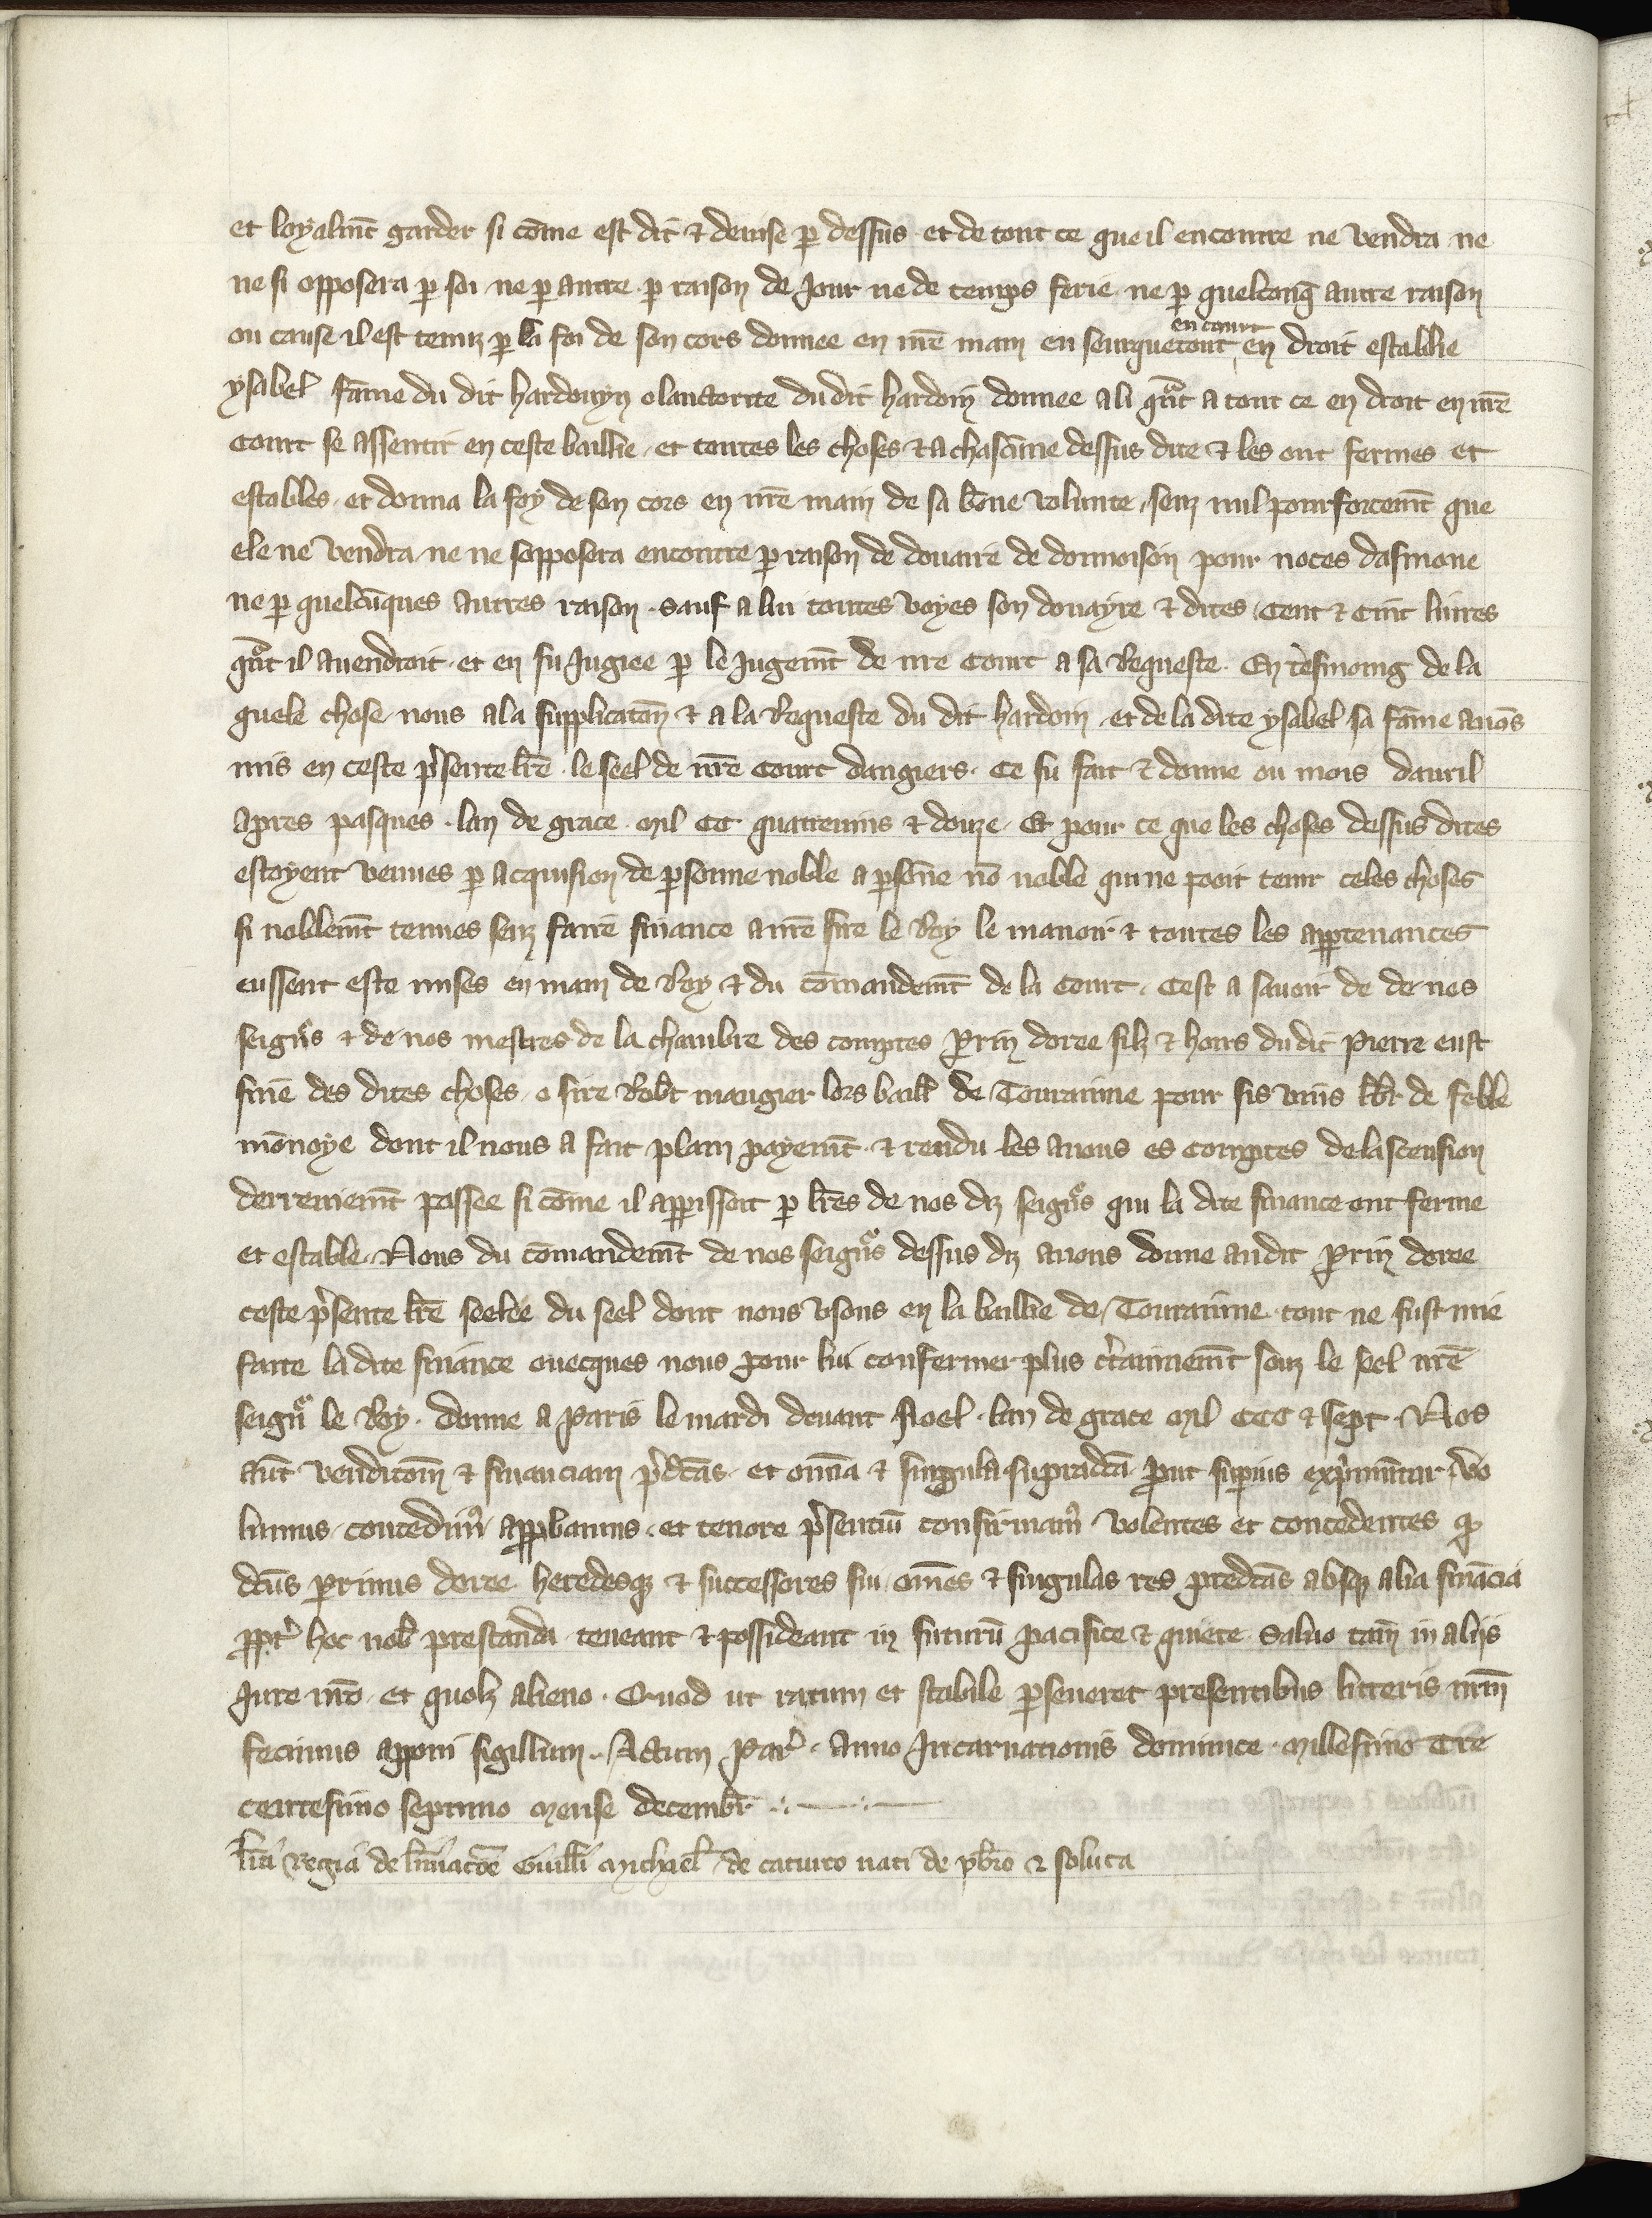 et loyalmt garder si come est dit & deuise p dessus et de tout ce que il encontre ne vendra ne
ne si opposera p soi ne p autre p raison de Jour ne de temps ferie ne p quelconq autre raison
ou cause il est tenuz p la foi de son cors donnee en nre main en seurquetout en court en droit establie
ysabel fame du dit hardouyn o lauctorite du dit hardoin donnee a li qnt a tout ce en droit en nre
Court se assentit en ceste baillie et toutes les choses & a chascune dessus dite & les out fermes et
estables et donna la foy de son cors en nre main de sa bone volunte senz nul pourforcemt que
ele ne vendra ne ne sopposera encontre p raison de douaire de donnoison pour noces dasmone
ne p quelcunques autres raison Sauf a lui toutes voyes son douayre & dites Cent & Cint liures
qnt il auendroit et en fu Jugiee p le Jugemt de nre Court a sa Requeste En tesmoing de la
quele chose nous a la supplicaton & a la Requeste du dit hardoin et de la dite ysabel sa fame auos
mis en ceste psente lre le seel de nre Court dangiers Ce fu fait & donne ou mois dauril
apres pasques lan de grace Mil CC quatreuins & douze Et pour ce que les choses dessus dites
estoyent venues p acquision de psonne noble a psone no noble qui ne pooit tenir celes choses
si noblemt tenues senz faire finance a nre sire le Roy le manoir & toutes les apptenances
eussent este mises en main de Roy & du comandemt de la Court Cest a sauoir de de nos
seigrs & de nos mestres de la chambre des comptes Perrin doree filz & hoirs du dit Pierre eust
fine des dites choses o sire Robt maugier lors baill de Touraine pour sis vins lbr de feble
monoye dont il nous a fait plain payemt & rendu les auons es Comptes de lascension
derreniemt passee si come il appissoit p lres de nos diz seigrs qui la dite finance ont ferme
et estable Nous du comandemt de nos seigrs dessus diz auons donne audit Perrin doree
ceste psente lre seelee du seel dont nous vsons en la baillie de Touraine tout ne fust mie
faite la dite finance ouecques nous pour lui confermer plus ctainemt souz le seel nre
seigr le Roy Donne a Paris le mardi deuant Noel lan de grace Mil CCC & sept Nos
aut venditom & financiam pdctas et omia & singula supradcta put supius exprimutur vo
lumus concedim appbamus et tenore psentiu confirmam volentes et concedentes q
dcus Perrinus doree heredesq & successores sui omes & singulas res predctas absq alia finacia
ppt hoc nob prestanda teneant & possideant in futuru pacifice & quiete Saluo tam in aliis
Jure nro et quolz alieno Quod ut ratum et stabile pseueret presentibus litteris nrm
fecimus apponi sigillum Actum Par Anno Incarnationis dominice Millesimo Tre
centesimo septimo Mense decembr
lra regia de legitimacoe Guilli Michael de caturco nati de pbro & soluta